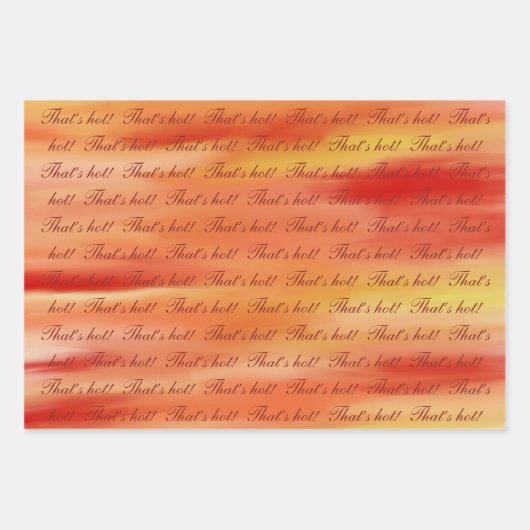 That's hot! That's hot! That's hot! That's hot! That's hot! That's
hot! That's hot! That's hot! That's hot! That's hot! That's hot!
That's hot! That's hot! That's hot! That's hot! That's hot! That's
hot! That's hot! That's hot! That's hot! That's hot! That's hot!
That's hot! That's hot! That's hot! That's hot! That's hot! That's
hot! That's hot! That's hot! That's hot! That's hot! That's hot!
That's hot! That's hot! That's hot! That's hot! That's hot! That's
hot! That's hot! That's hot! That's hot! That's hot! That's hot!
That's hot! That's hot! That's hot! That's hot! That's hot! That's
hot! That's hot! That's hot! That's hot! That's hot! That's hot!
That's hot! That's hot! That's hot! That's hot! That's hot! That's
hot! That's hot! That's hot! That's hot! That's hot! That's hot!